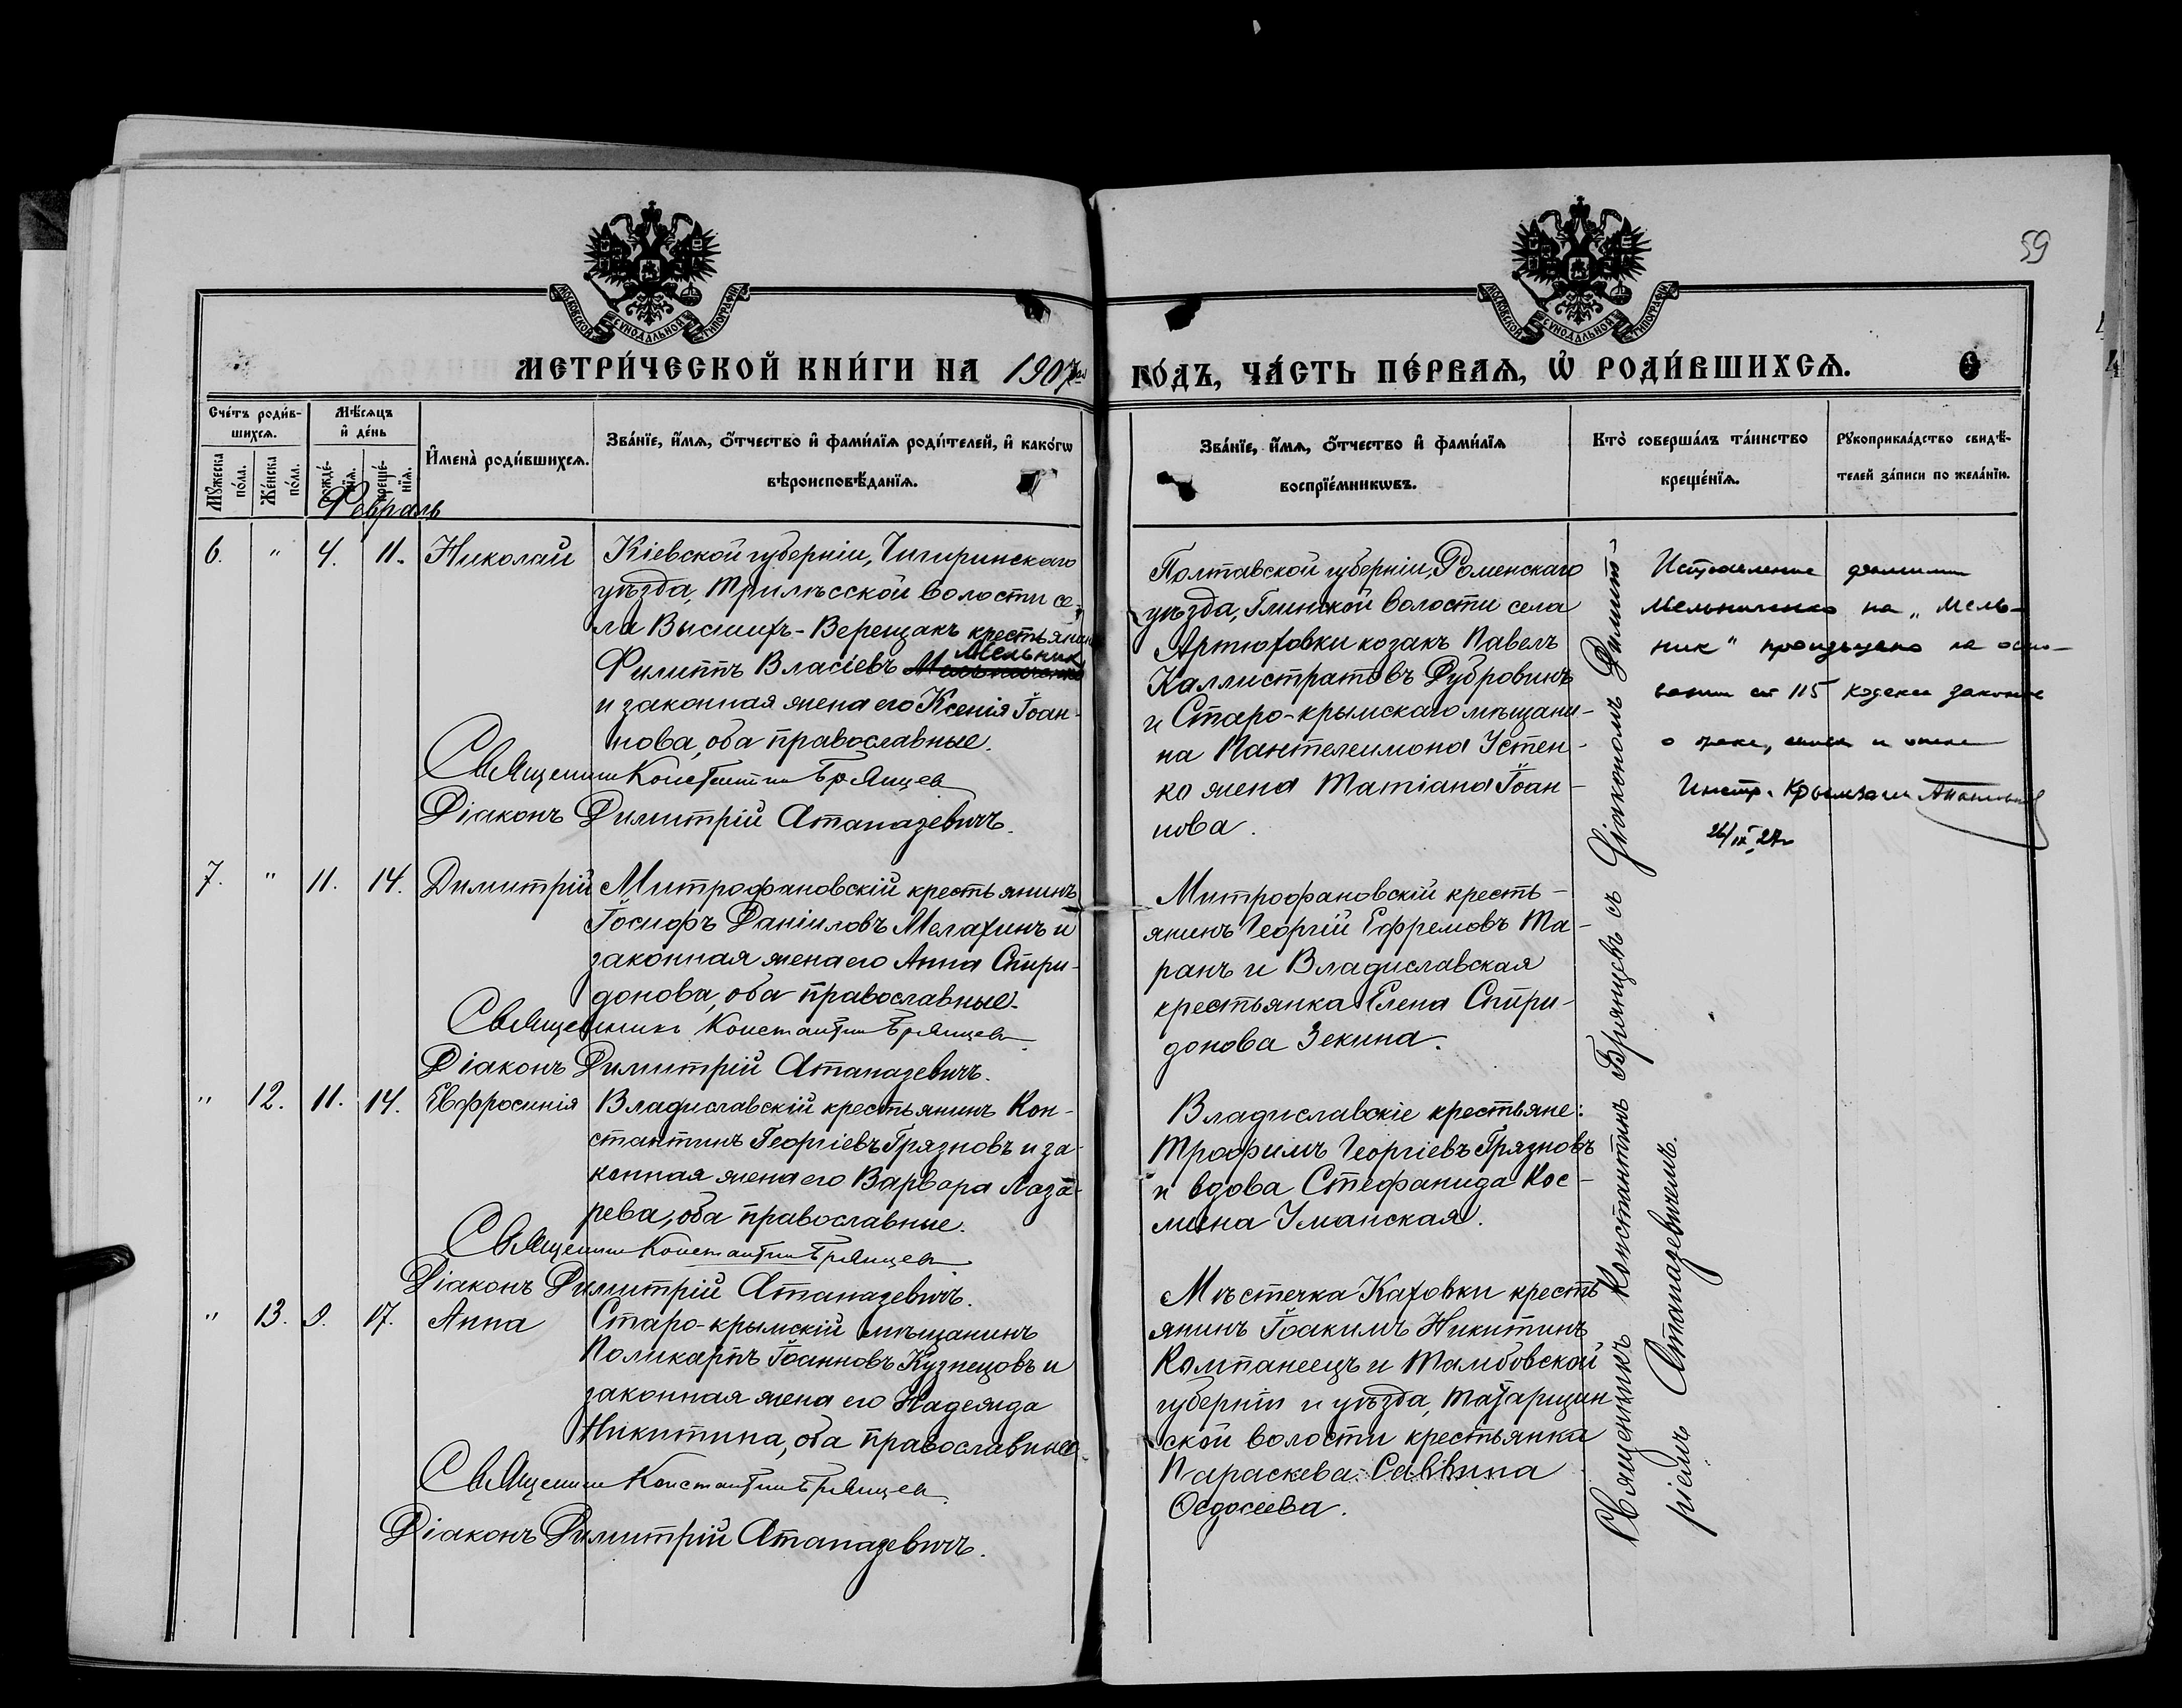 59
МОСКОВСКОЙ СѴНОДАЛЬНОЙ ТИПОГРАФІИ
МОСКОВСКОЙ СѴНОДАЛЬНОЙ ТИПОГРАФІИ
МЕТРИ́ЧЕСКОЙ КНИ́ГИ НА 1907й
ГО́ДЪ, ЧА́СТЬ ПЕ́РВАѦ, Ѡ҆ РОДИ́ВШИХСѦ.
Сче́тъ роди́в-
шихсѧ.
Мꙋ́жеска по́ла.
Же́нска по́ла.
Мѣ́сѧцъ
и҆ де́нь
рожде́-
нїѧ.
креще́-
нїѧ.
И҆мена̀ роди́вшихсѧ.
Зва́нїе, и҆́мѧ, ѻ҆́тчество и҆ фами́лїѧ роди́телей, и҆ како́гѡ
вѣроисповѣ́данїѧ.
Зва́нїе, и҆́мѧ, ѻ҆́тчество и҆ фами́лїѧ
воспрїе́мникѡвъ.
Кто̀ соверша́лъ та́инство
креще́нїѧ.
Рꙋкоприкла́дство свидѣ́-
телей за́писи по жела́нїю.
Февраль
6. " 4. 11. Николай
Кіевской губерніи, Чигиринскаго
уѣзда, Трилѣсской волости се-
ла Высшихъ-Верещакъ крестьянинъ
Мельникъ
Филиппъ Власіевъ Мельниченко
и законная жена его Ксенія Іоан-
нова, оба православные.
Священникъ Константинъ Брянцевъ
Діаконъ Димитрій Атаназевичъ.
Полтавской губерніи, Роменскаго
уѣзда, Глинской волости села
Артюховки козакъ Павелъ
Каллистратовъ Дубровинъ
и Старо-крымскаго мѣщани-
на Пантелеимона Устен-
ко жена Татіана Іоан-
нова.
Исправление фамилии
Мельниченко на „Мель-
ник" произведено на осно-
вании ст 115 кодекса законов
о браке, семье и опеке
26/IX 27г
7. " 11. 14. Димитрій
Митрофановскій крестьянинъ
Іосифъ Даніиловъ Мелахинъ и
законная жена его Анна Спири-
донова, оба православные.
Священникъ Константинъ Брянцевъ
Діаконъ Димитрій Атаназевичъ.
Митрофановскій кресть-
янинъ Георгій Ефремовъ Та-
ранъ и Владиславская
крестьянка Елена Спири-
донова Зекина.
" 12. 11. 14. Евфросинія
Владиславскій крестьянинъ Кон-
стантинъ Георгіевъ Грязновъ и за-
конная жена его Варвара Лаза-
рева, оба православные.
Священникъ Константинъ Брянцевъ
Діаконъ Димитрій Атаназевичъ.
Владиславскіе крестьяне:
Трофимъ Георгіевъ Грязновъ
и вдова Стефанида Кос-
мина Уманская.
" 13. 9. 17. Анна
Старо-крымскій мѣщанинъ
Поликарпъ Іоанновъ Кузнецовъ и
законная жена его Надежда
Никитина, оба православные.
Священникъ Константинъ Брянцевъ
Діаконъ Димитрій Атаназевичъ.
Мѣстечка Каховки кресть
янинъ Іоакимъ Никитинъ
Компанеецъ и Тамбовской
губерніи и уѣзда, Татарщин
ской волости крестьянка
Параскева Саввина
Ѳедосеева.
Священникъ Константинъ Брянцевъ съ Діакономъ Димит-
ріемъ Атаназевичемъ.